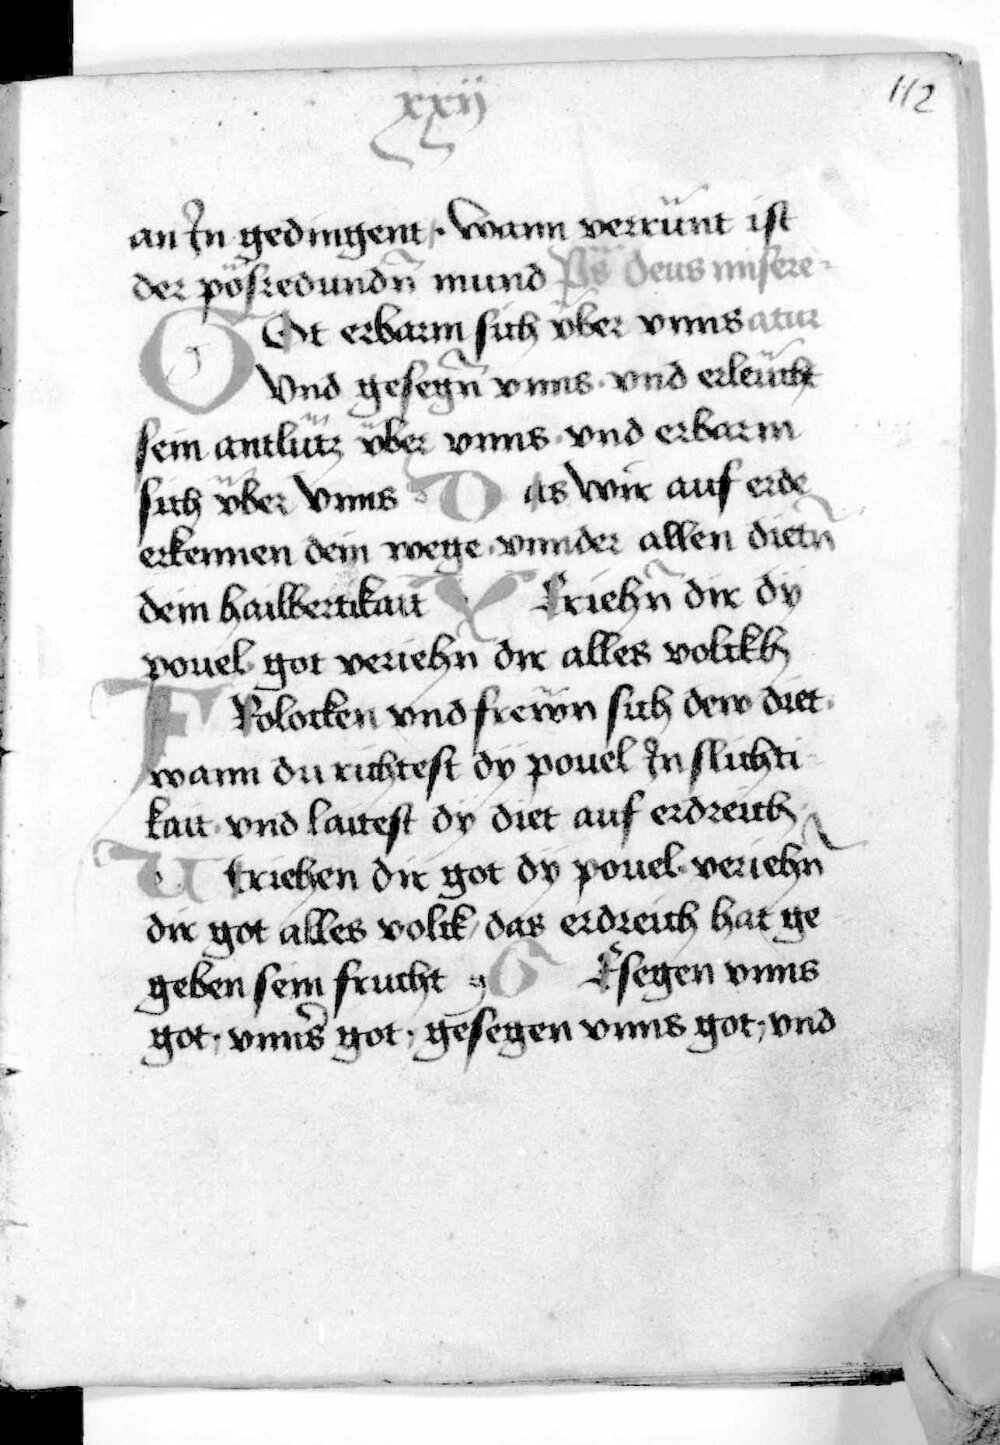 xxij
112
an in gedingent · wann verrünt ist
der pösredundn̄ mund Ps̄ deus misere-
GOt erbarm sich über vnns atur
Vnd gesegn̄ vnns · vnd erleücht
sein antlütz über vnns · vnd erbarm
sich über Vnns Das wir auf erde
erkennen dein wege · vnnder allen dietn̄
dein hailbertikait VEriehn̄ dir dÿ
pouel · got veriehn dir alles volckh
FRolocken vnd frewn sich dew diet ·
wann du richtest dÿ pouel in slichti
kait · vnd laitest dÿ diet auf erdreich
VEriehen dir got dÿ pouel · veriehn̄
dir got alles volck / das erdreich hat ge
geben sein frucht GEsegen vnns
got · vnns̄ got · gesegen vnns got · vnd